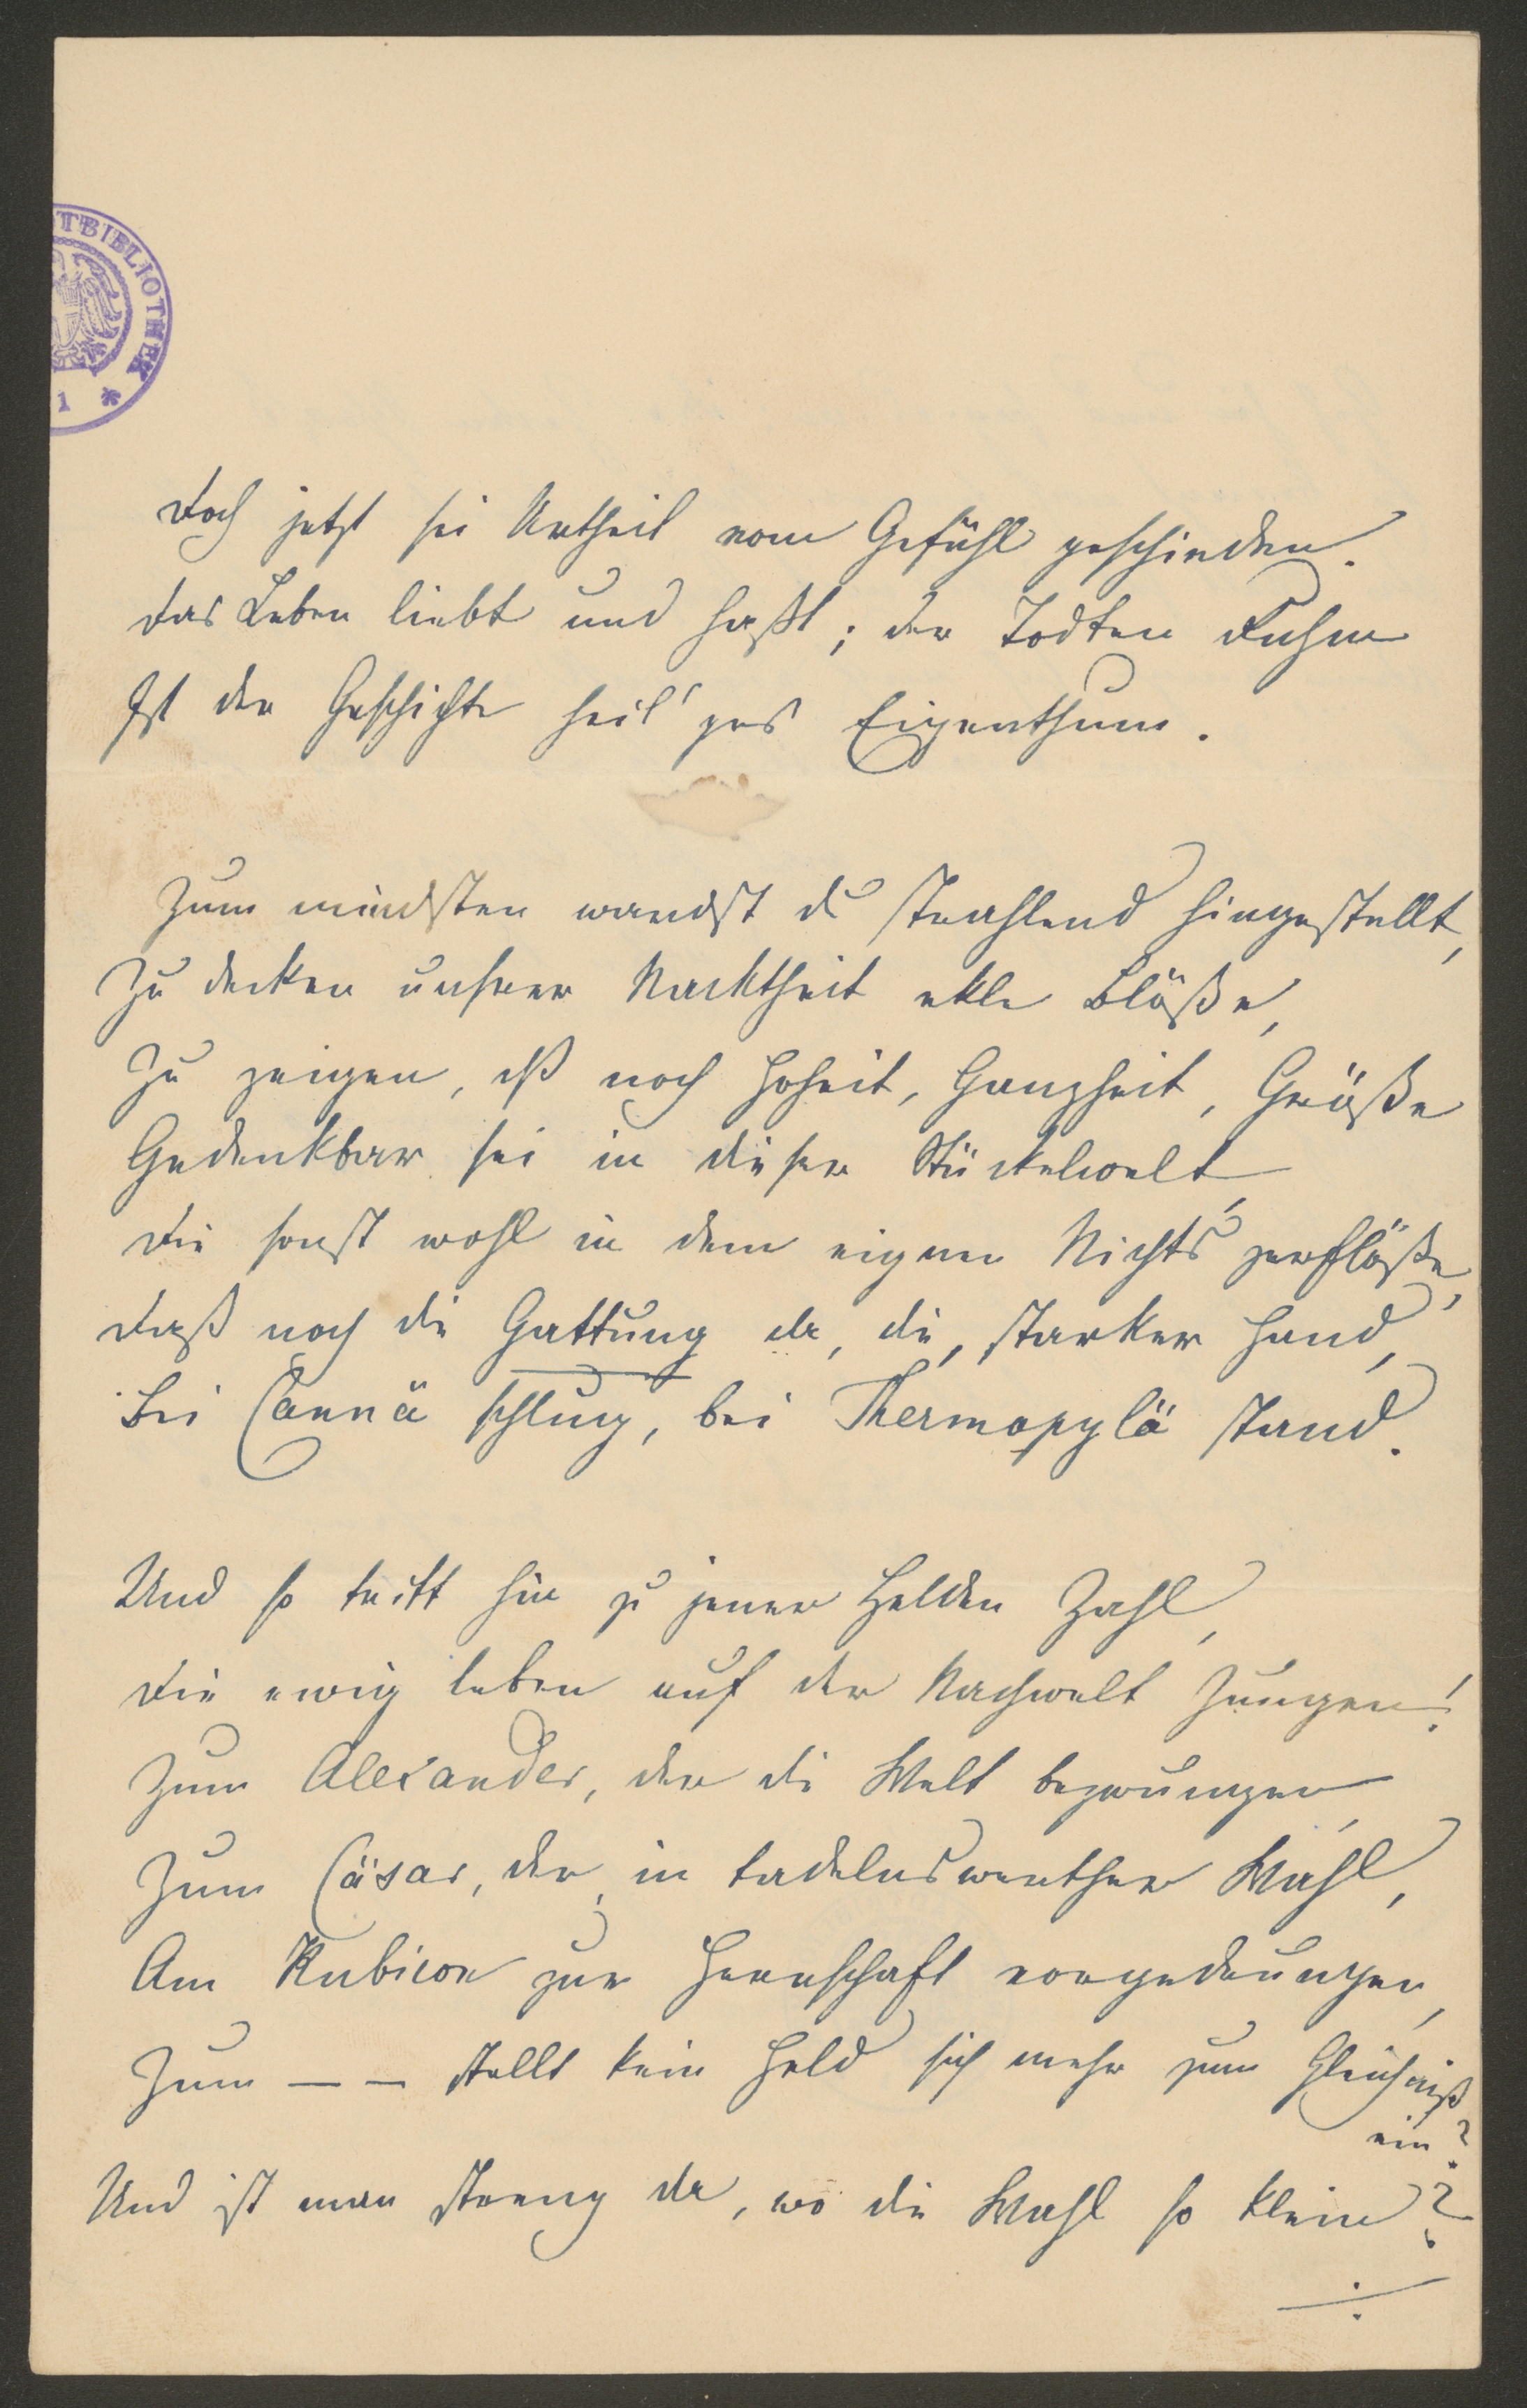 TBIBLIOTHEK
1 *
Doch jetzt sei Urtheil vom Gefühl geschieden.
Das Leben liebt und haßt; der Todten Ruhm
Ist der Geschichte heil'ges Eigenthum.
Zum mindsten wardst du strahlend hingestellt,
Zu decken unsrer Nacktheit ekle Blöße,
Zu zeigen, daß noch Hoheit, Ganzheit, Größe
Gedenkbar sei in dieser Stückelwelt,
Die sonst wohl in dem eignen Nichts zerflöße,
Daß noch die Gattung da, die, starker Hand,
Bei Cannä schlug, bei Thermopylä stand.
Und so tritt hin zu jener Helden Zahl,
Die ewig leben auf der Nachwelt Zungen!
Zum Alexander, der die Welt bezwungen,
Zum Cäsar, der, in tadelnswerther Wahl,
Am Rubicon zur Herrschaft vorgedrungen,
Zum — — stellt kein Held sich mehr zum Gleichniß
ein?
Und ist man streng da, wo die Wahl so klein?